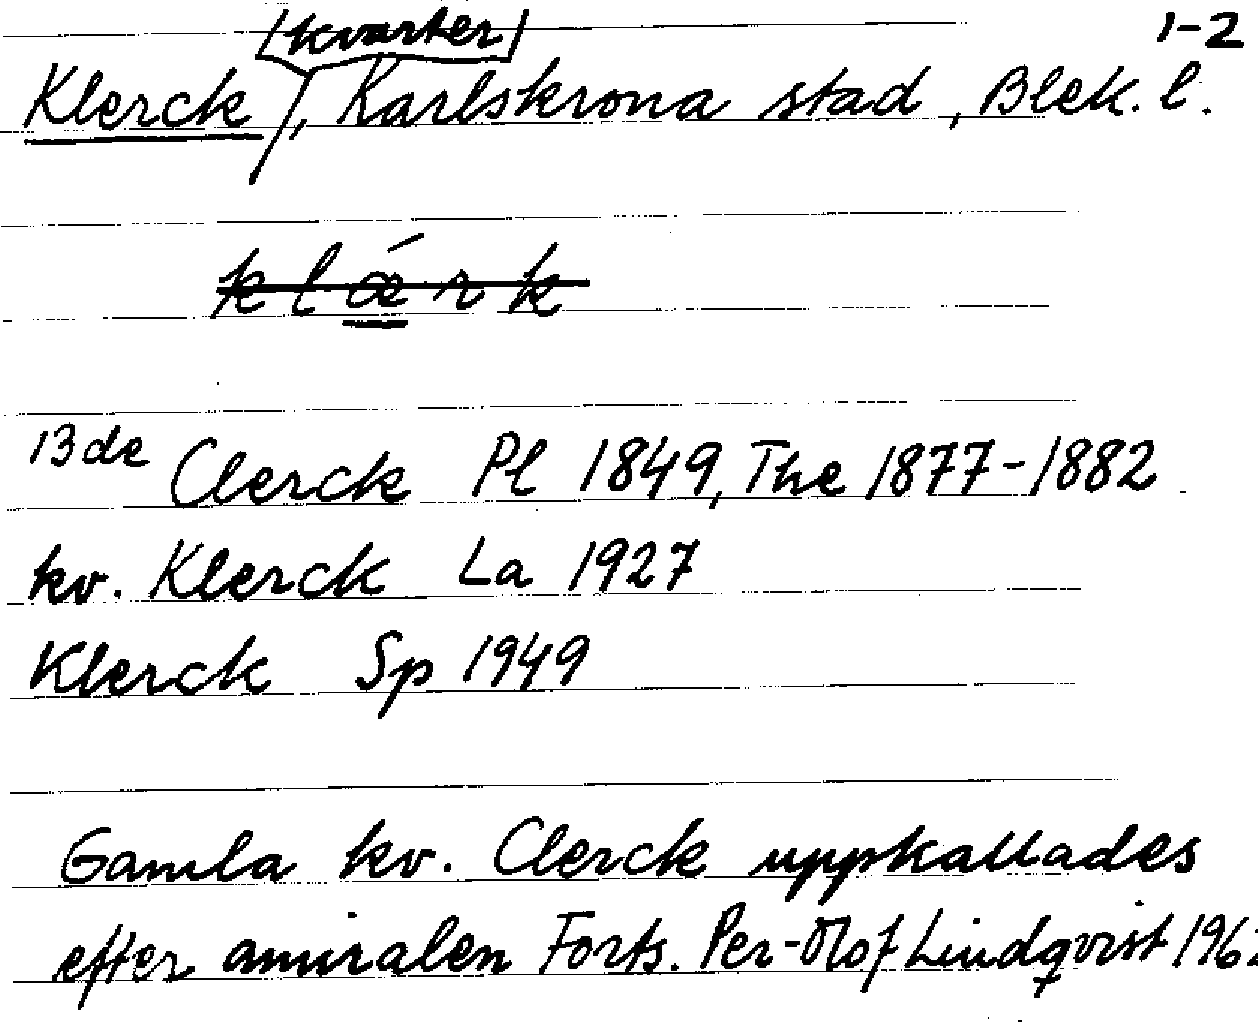 (kvarter) 1-2
Klerck, Karlskrona stad, Blek. l.
klǽrk
13de Clerck Pl 1849, The 1877-1882
kv. Klerck La 1927
Klerck Sp 1949
Gamla kv. Clerck uppkallades
efter amiralen Forts. Per-Olof Lindqvist